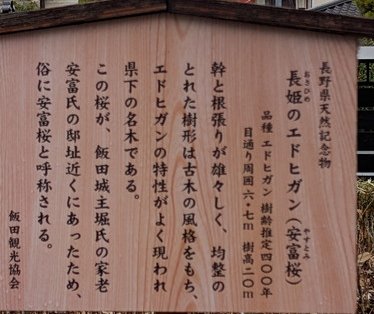 長野県天然記念物
長姫のエドヒガン（安富桜）
おさひめ
やすとみ
品種 エドヒガン 樹齢推定四〇〇年
目通り周囲六・七m 樹高二〇m
幹と根張りが雄々しく、均整の
とれた樹形は古木の風格をもち、
エドヒガンの特性がよく現われ
県下の名木である。
この桜が、飯田城主堀氏の家老
安富氏の邸址近くにあったため、
俗に安富桜と呼称される。
飯田観光協会